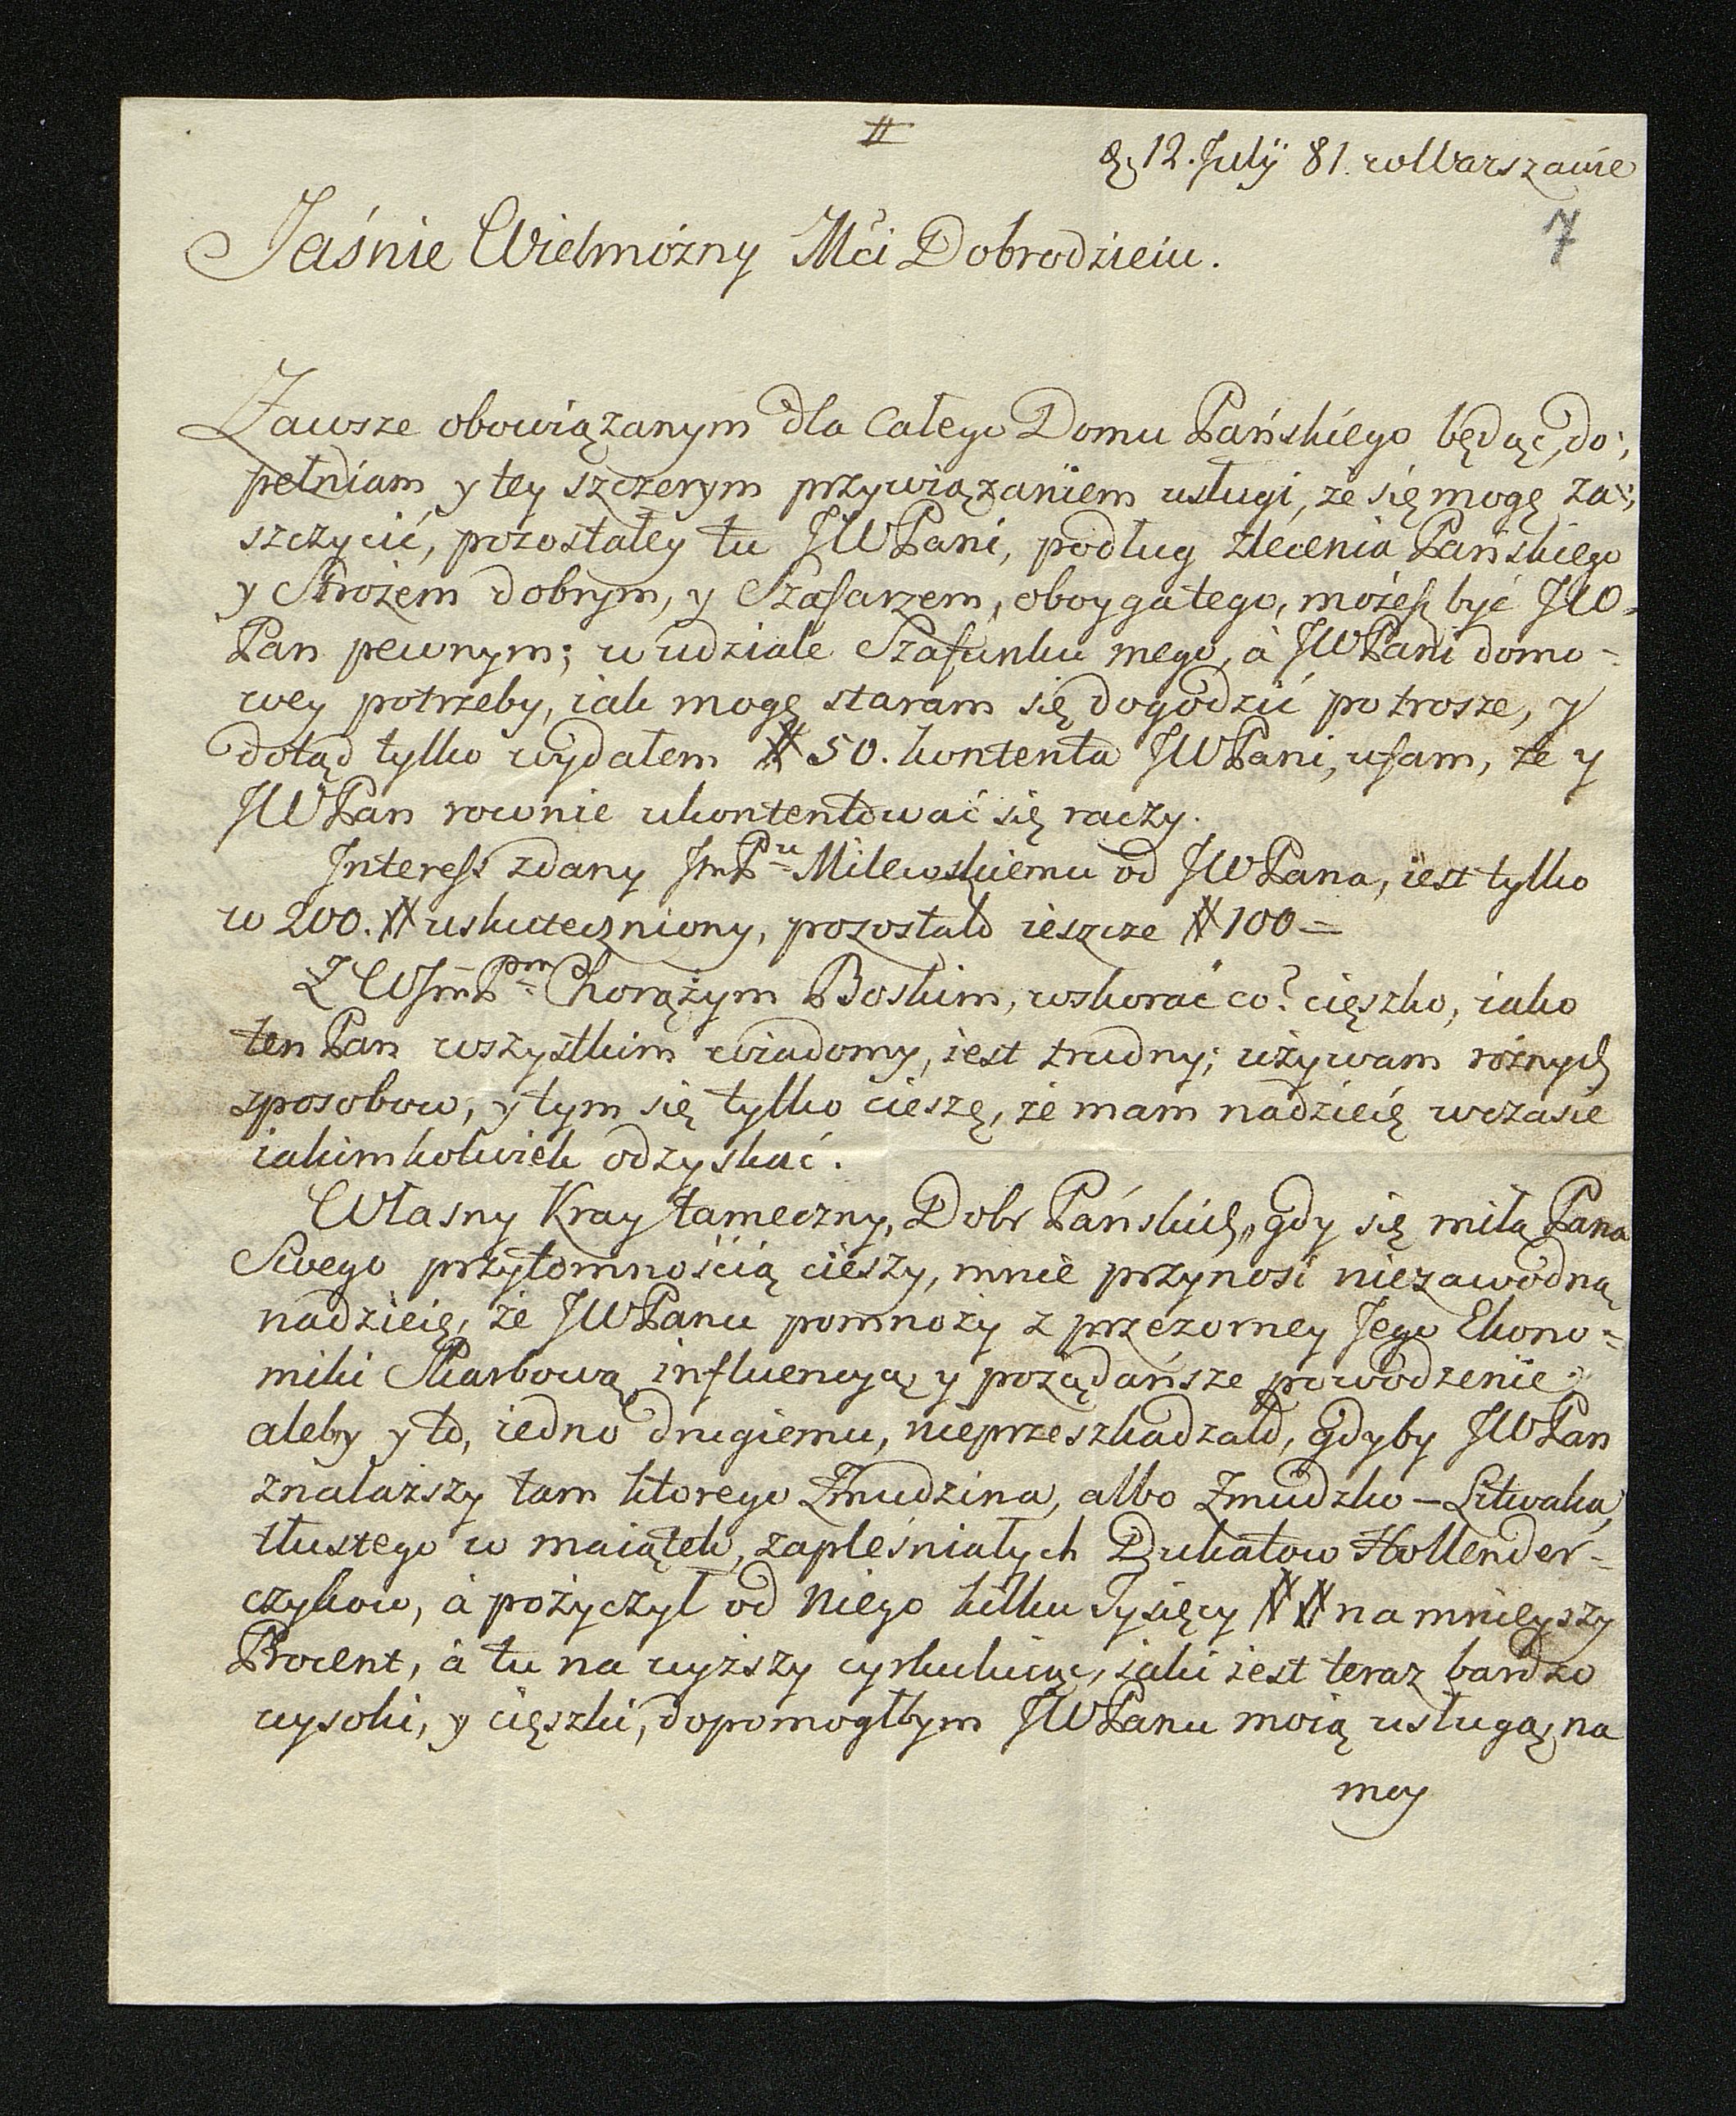 #
d. 12. July 81. w Warszawie
7
Jaśnie Wielmożny Mci Dobrodzieiu.
Zawsze obowiązanym dla całego Domu Pańskiego będąc, do:
pełniam y tey szczerym przywiązaniem usługi, że się mogę za:
szczycić, pozostałey tu JWPani, podług zlecenia Pańskiego
y Strożem dobrym, y Szafarzem, oboygatego, możesz być JW-
Pan pewnym; w udziale Szafunku mego, à JWPani domo-
wey potrzeby, iak mogę staram się dogodzić po trosze, y
dotąd tylko wydałem # 50. kontenta JWPani, ufam, że y
JWPan rownie ukontentować się raczy.
Interess zdany JmPu Milewskiemu od JWPana, iest tylko
w 200. # uskuteczniony, pozostało ieszcze # 100 =
Z WJmPm Chorążym Boskim, wskorać co? cięszko, iako
ten Pan wszystkim wiadomy, iest trudny; używam rożnych
sposobow, y tym się tylko cieszę, że mam nadzieię w czasie
iakimkolwiek odzyskać.
Własny Kray tameczny, Dobr Pańskich, gdy się miłą Pana
Swego przytomnością cieszy, mnie przynosi niezawodną
nadzieię, że JWPanu pomnoży z przezorney Jego Ekono=
miki Skarbową influencyą y pożądańsze powodzenie;
aleby y to, iedno drugiemu, nieprzeszkadzało, gdyby JWPan
znalazszy tam ktorego Zmudzina, albo Zmudzko-Litwaka,
tłustego w maiątek, zapleśniałych Dukatow Hollender=
czykow, à pożyczył od niego kilku Tysięcy ## na mnieyszy
Procent, à tu na wyższy cyrkuluiąc, iaki iest teraz bardzo
wysoki, y cięszki, dopomogłbym JWPanu moią usługą, na
mey